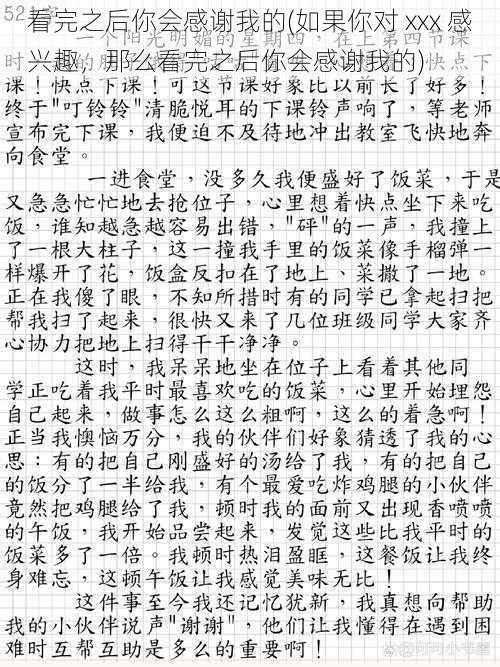 看完之后你会感谢我的(如果你对 xxx 感
兴趣，那么看完之后你会感谢我的)
521字
一个阳光明媚的星期四，在上第四节课
时
课！快点下课！可这节课好象比以前长了好多！
终于"叮铃铃"清脆悦耳的下课铃声响了，等老师
宣布完下课，我便迫不及待地冲出教室飞快地奔
向食堂。
一进食堂，没多久我便盛好了饭菜，于是
又急急忙忙地去抢位子，心里想着快点坐下来吃
饭，谁知越急越容易出错，"砰"的一声，我撞上
了一根大柱子，这一撞我手里的饭菜像手榴弹一
样爆开了花，饭盒反扣在了地上、菜撒了一地。
正在我傻了眼，不知所措时有的同学已拿起扫把
帮我扫了起来，很快又来了几位班级同学大家齐
心协力把地上扫得干干净净。
这时，我呆呆地坐在位子上看着其他同
学正吃着我平时最喜欢吃的饭菜，心里开始埋怨
自己起来，做事怎么这么粗啊，这么的着急啊！
正当我懊恼万分，我的伙伴们好象猜透了我的心
思：有的把自己刚盛好的汤给了我，有的把自己
的饭分了一半给我，有个最爱吃炸鸡腿的小伙伴
竟然把鸡腿给了我，顿时我的面前又出现香喷喷
的午饭，我开始品尝起来，发觉这些比我平时的
饭菜多了一倍。我顿时热泪盈眶，这餐饭让我终
身难忘，这顿午饭让我感觉美味无比！
这件事至今我还记忆犹新，我真想向帮助
我的小伙伴说声"谢谢"，他们让我懂得在遇到困
难时互帮互助是多么的重要啊！